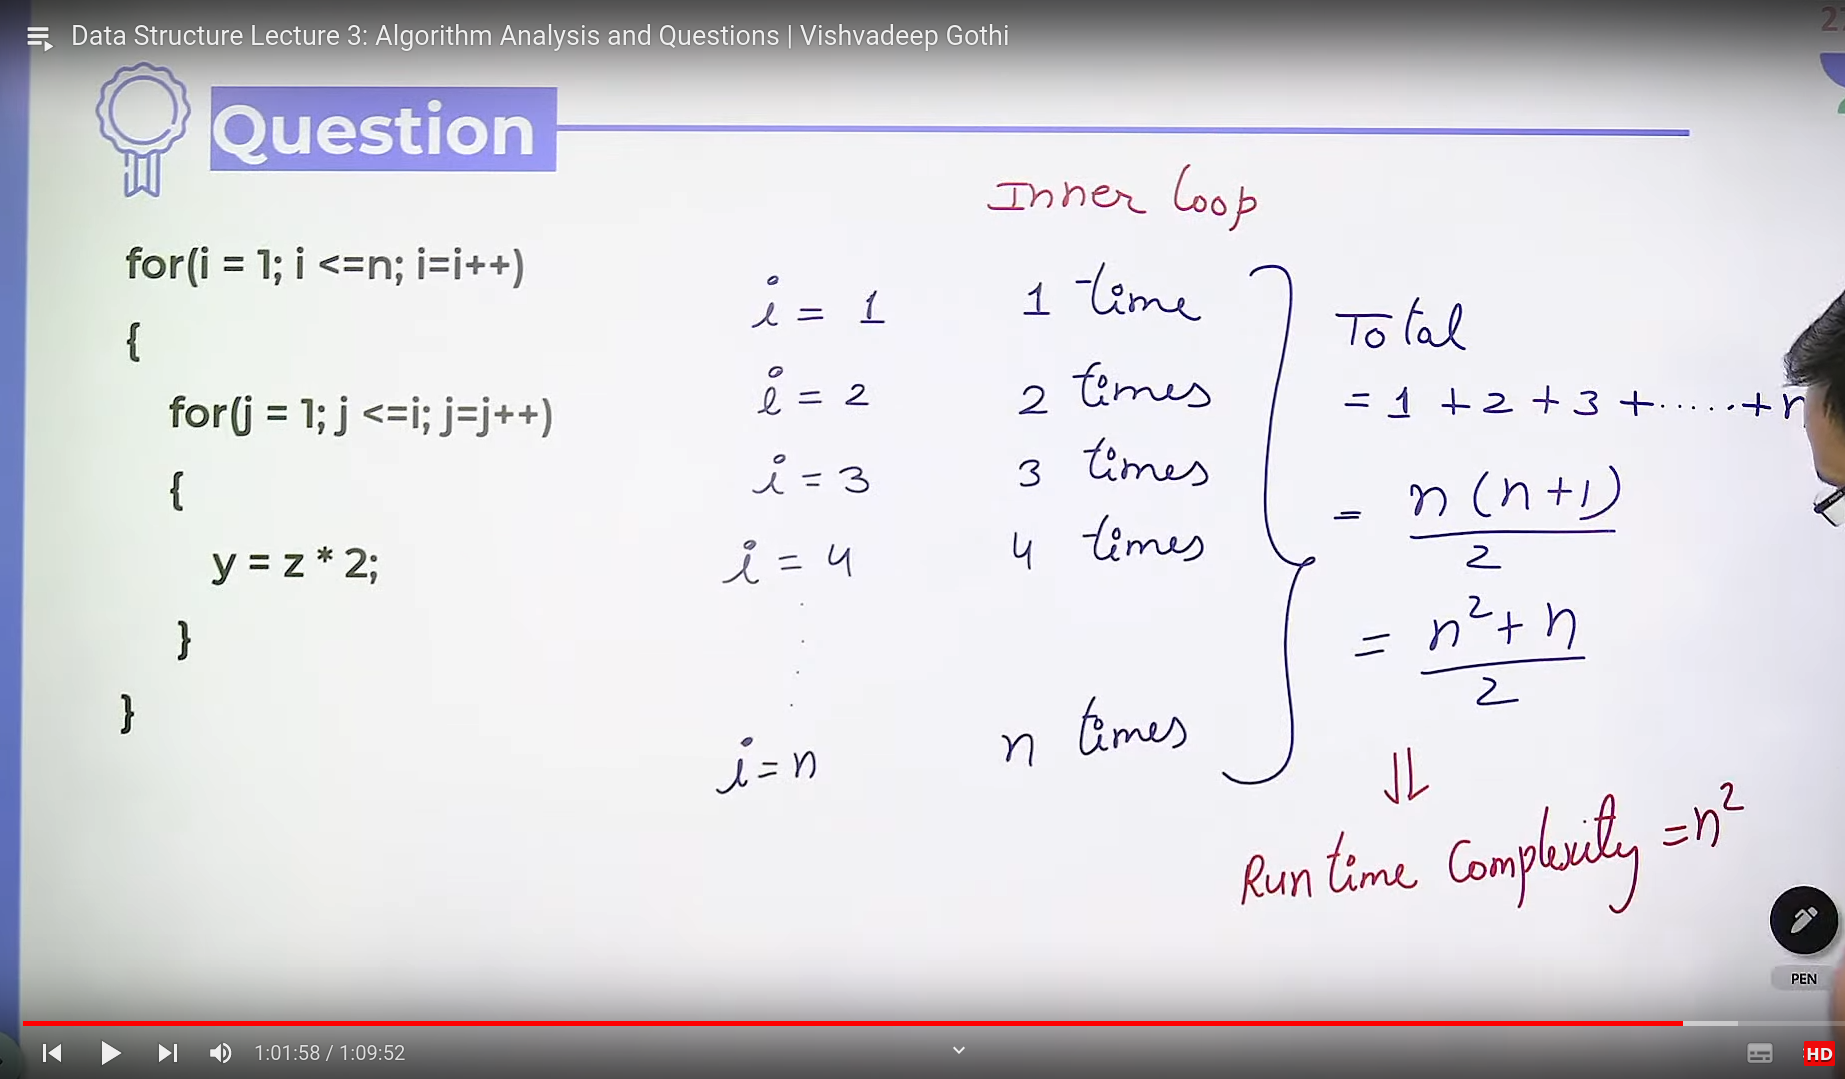 Data Structure Lecture 3: Algorithm Analysis and Questions | Vishvadeep Gothi
Question
for(i = 1; i <=n; i=i++)
{
for(j = 1; j <=i; j=j++)
{
y = z * 2;
}
}
Inner loop
i = 1 1 time
i = 2 2 times
i = 3 3 times
i = 4 4 times
i = n n times
Total
= 1 + 2 + 3 + ..... + n
= n (n+1) / 2
= n² + n / 2
⇓
Run time Complexity = n²
PEN
1:01:58 / 1:09:52
HD